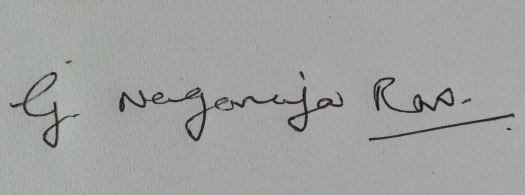 G. Nagaraja Rao.